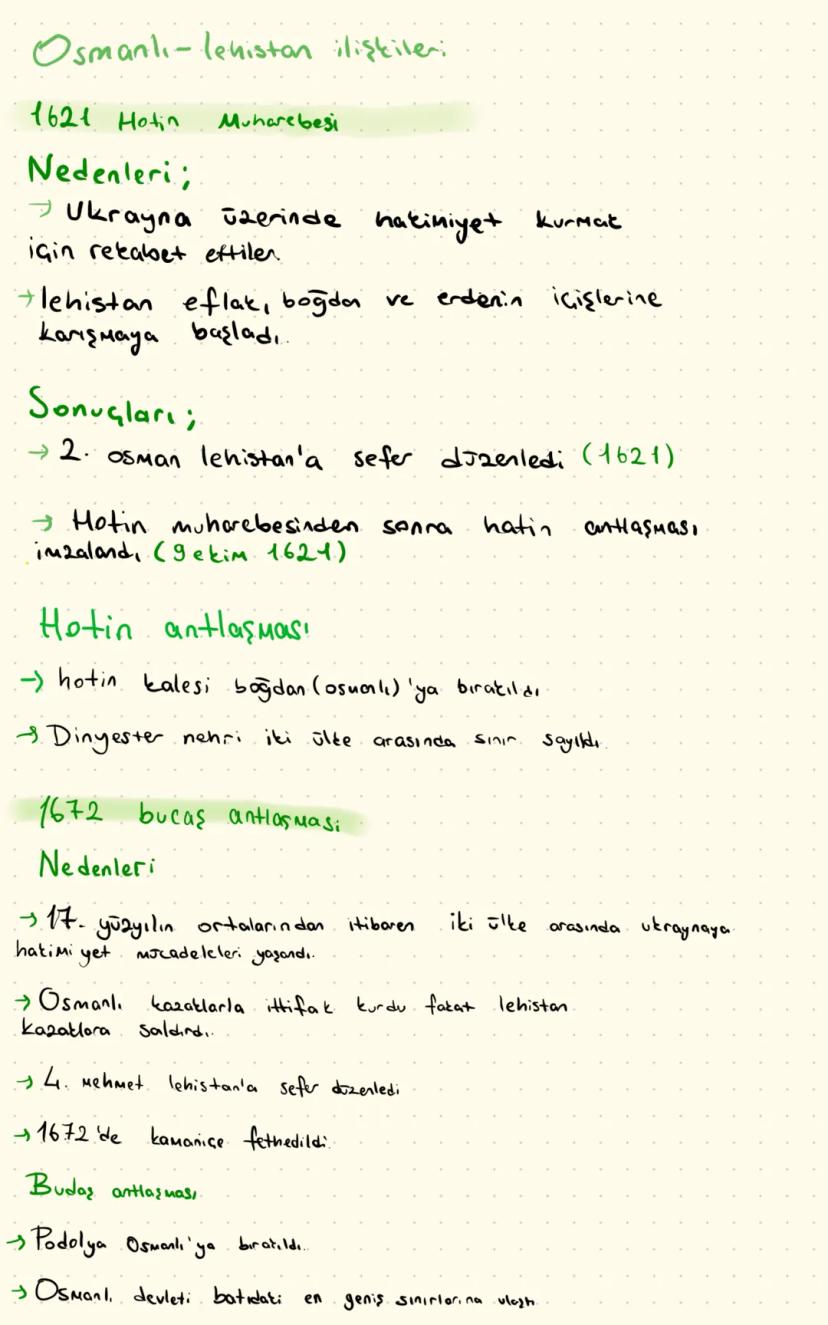 Osmanlı - lehistan ilişkileri
1621 Hotin Muharebesi
Nedenleri ;
→ Ukrayna üzerinde hakimiyet kurmak
için rekabet ettiler.
→ lehistan eflak, boğdan ve erdenin içişlerine
karışmaya başladı.
Sonuçları ;
→ 2. osman lehistan'a sefer düzenledi (1621)
→ Hotin muharebesinden sonra hatin antlaşması
imzalandı (9 ekim 1621)
Hotin antlaşması
→ hotin kalesi boğdan (osmanlı) 'ya bırakıldı
→ Dinyester nehri iki ülke arasında sınır sayıldı.
1672 bucaş antlaşması
Nedenleri
→ 17. yüzyılın ortalarından itibaren iki ülke arasında ukraynaya
hakimiyet mücadeleleri yaşandı.
→ Osmanlı kazaklarla ittifak kurdu fakat lehistan
kazaklara saldırdı.
→ 4. Mehmet lehistan'a sefer düzenledi
→ 1672'de kamaniçe fethedildi.
Budaş antlaşması
→ Podolya Osmanlı'ya bırakıldı.
→ Osmanlı devleti batıdaki en geniş sınırlarına ulaştı